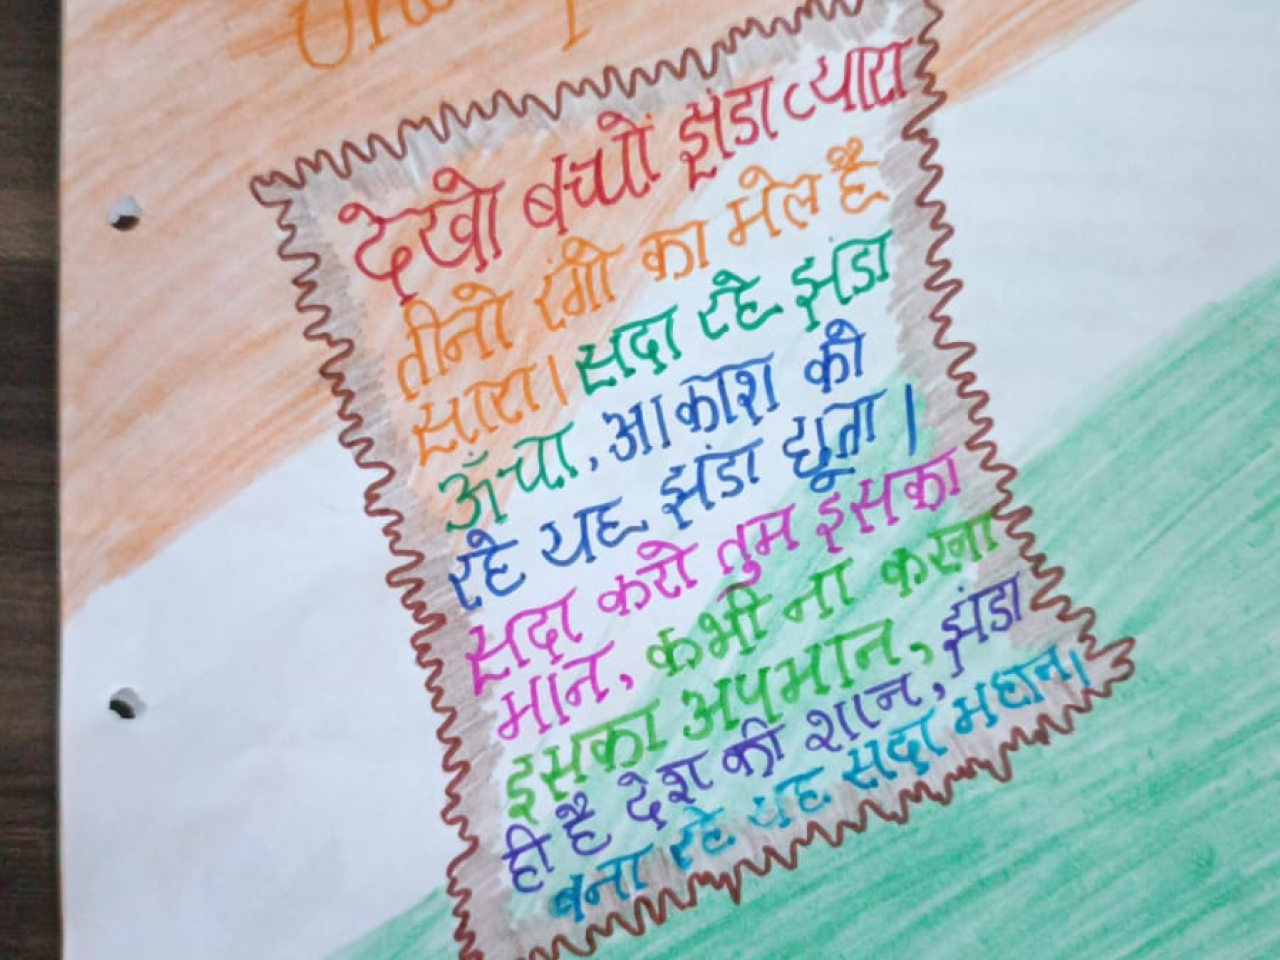 देखो बच्चों झंडा प्यारा
तीनो रंगो का मेल है
सारा। सदा रहे झंडा
ऊँचा, आकाश को
रहे यह झंडा छूता।
सदा करो तुम इसका
मान, कभी ना करना
इसका अपमान, झंडा
ही है देश की शान,
बना रहे यह सदा महान।